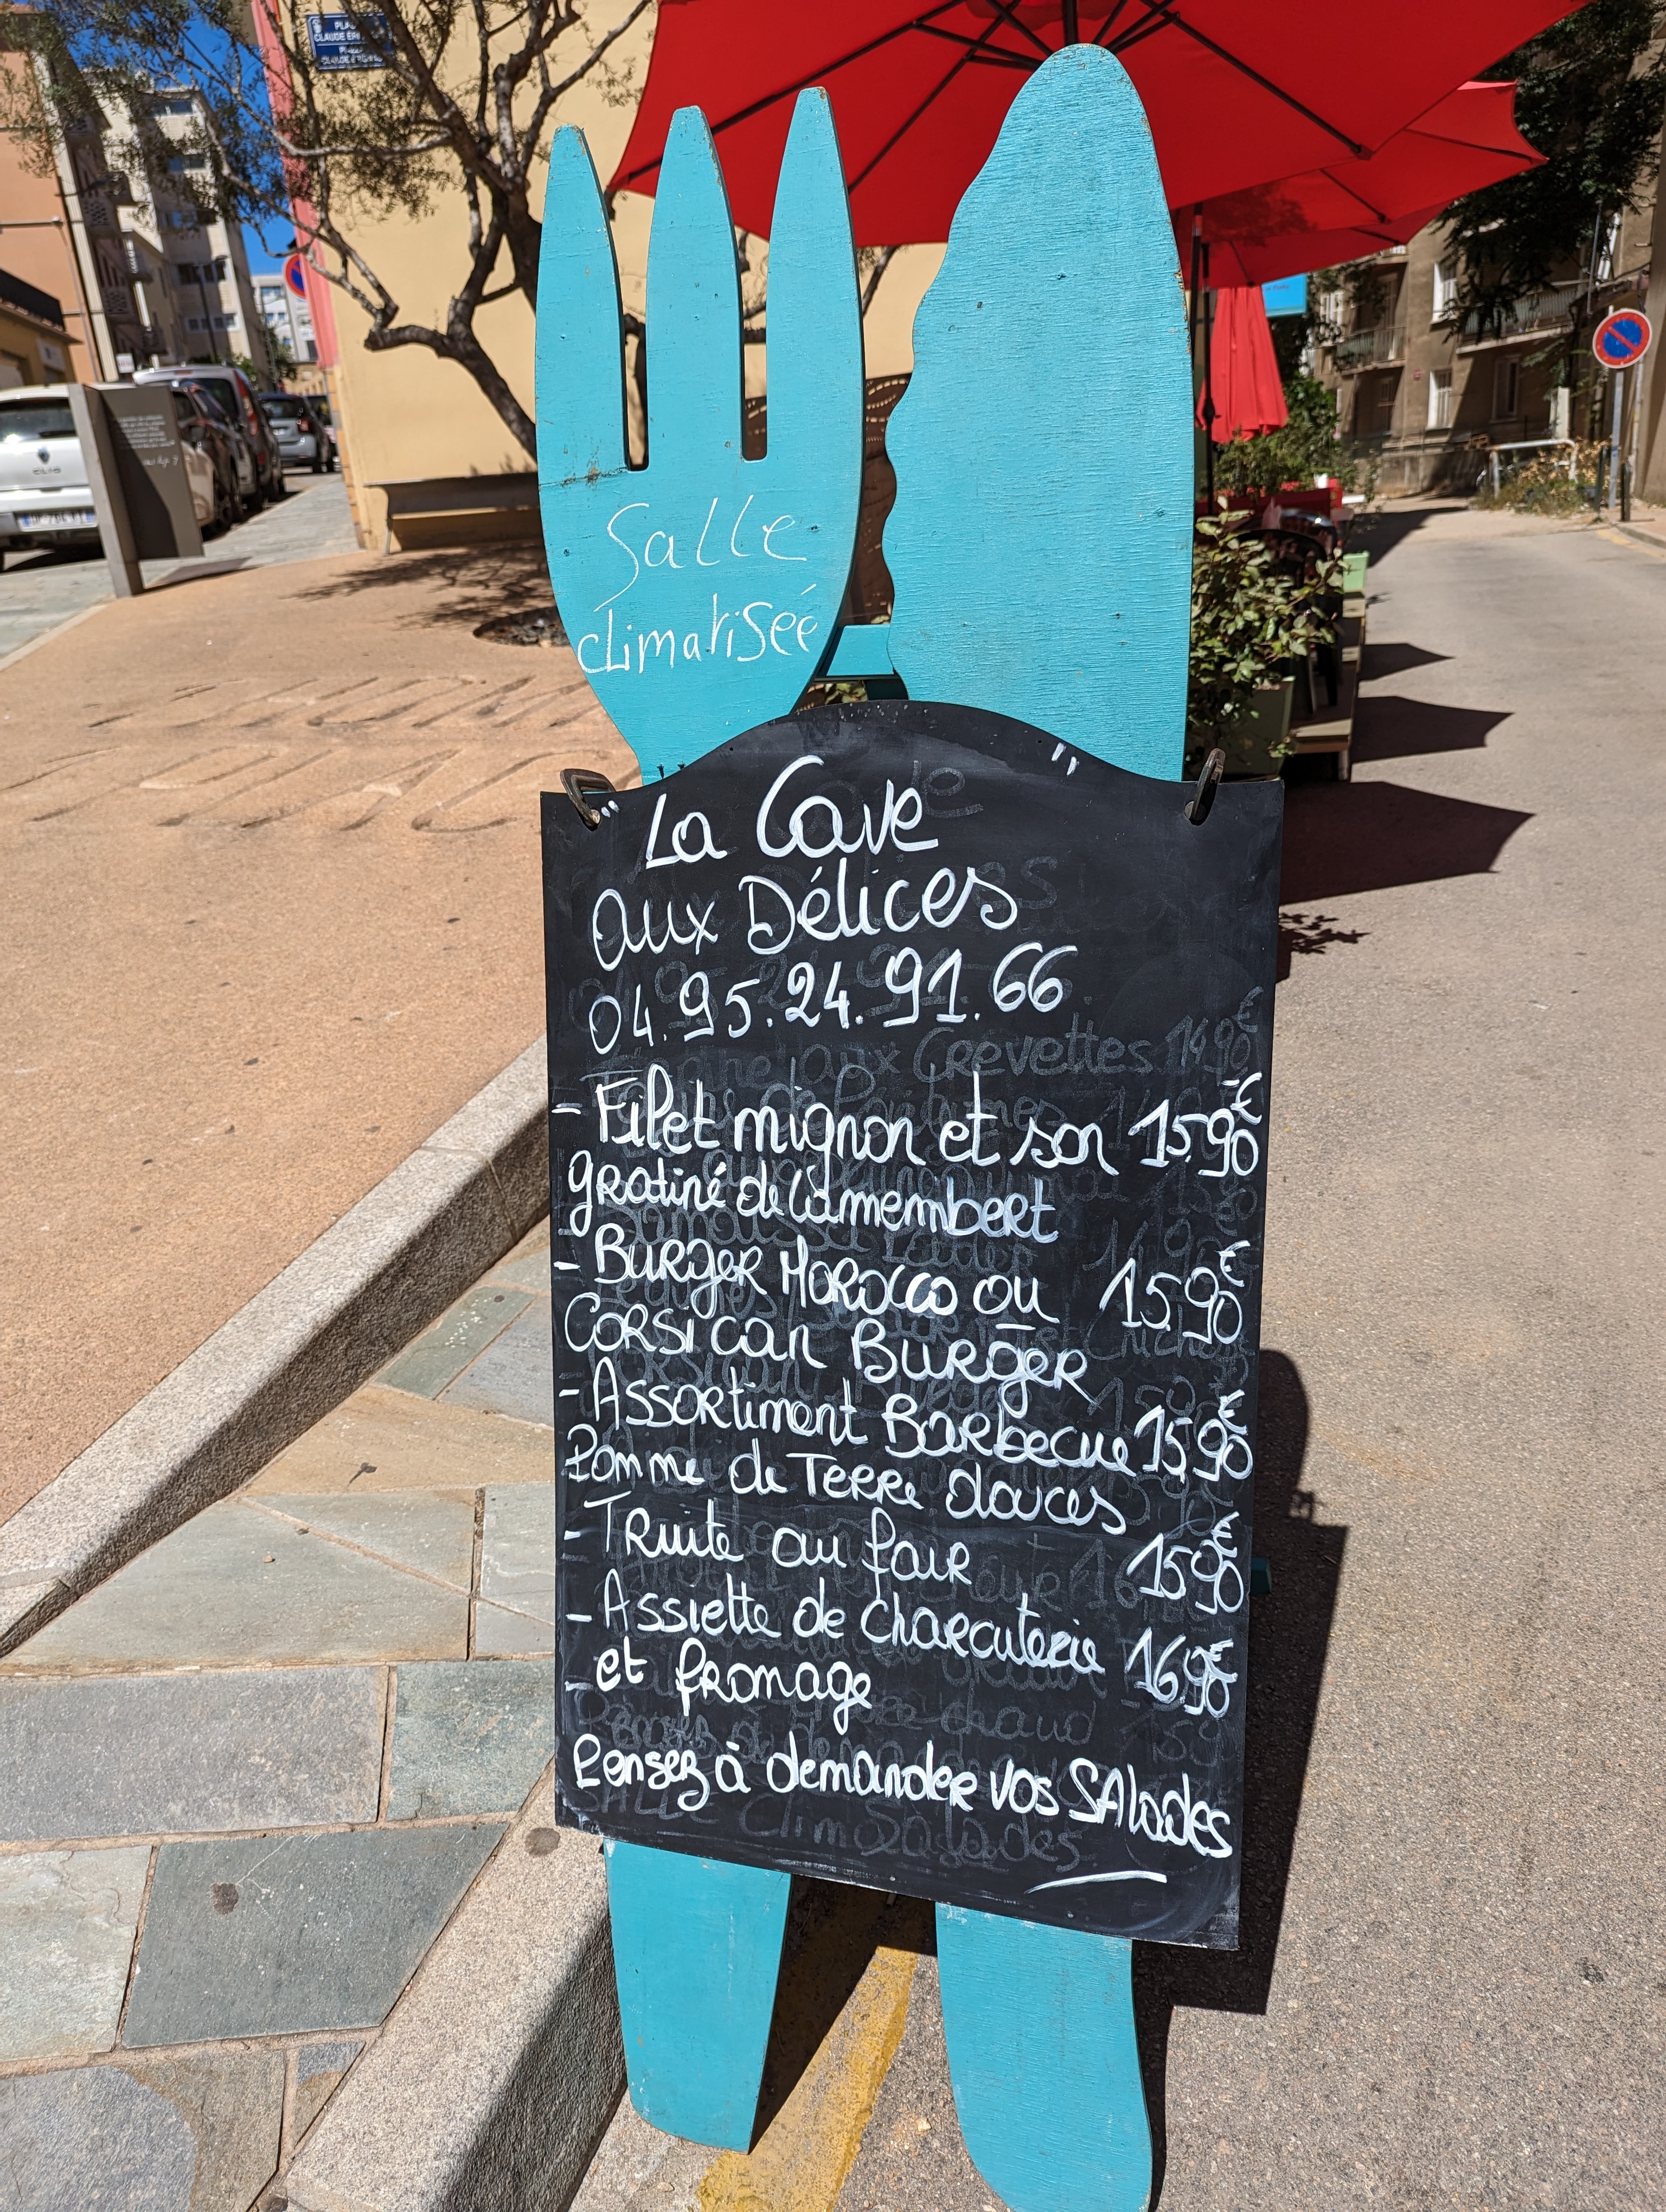 PLACE
CLAUDE ÉRIGNAC
CLIO
Salle
climatisée
" La Cave "
aux Délices
04.95.24.91.66
- Filet mignon et son 15,90€
gratiné de Camembert
- Burger Morocco ou 15,90€
Corsican Burger
- Assortiment Barbecue 15,90€
Pomme de Terre douces
- Truite au four 15,90€
- Assiette de charcuterie 16,90€
- et fromage
Pensez à demander vos SAlades